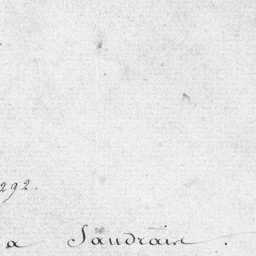 292.
a Saudraie.